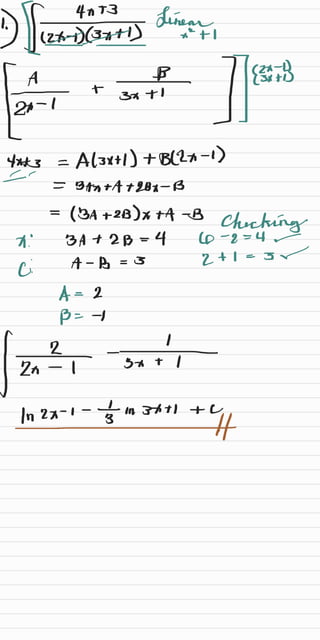 1.) ∫ (4x+3)/((2x-1)(3x+1)) Linear x²+1
[ A/(2x-1) + B/(3x+1) ] ] (2x-1)(3x+1)
4x+3 = A(3x+1) + B(2x-1)
= 3Ax+A+2Bx-B
= (3A+2B)x+A-B Checking
x: 3A+2B=4 6-2=4 ✓
C: A-B=3 2+1=3 ✓
A= 2
B= -1
∫ 2/(2x-1) - 1/(3x+1)
ln 2x-1 - 1/3 ln 3x+1 + C //